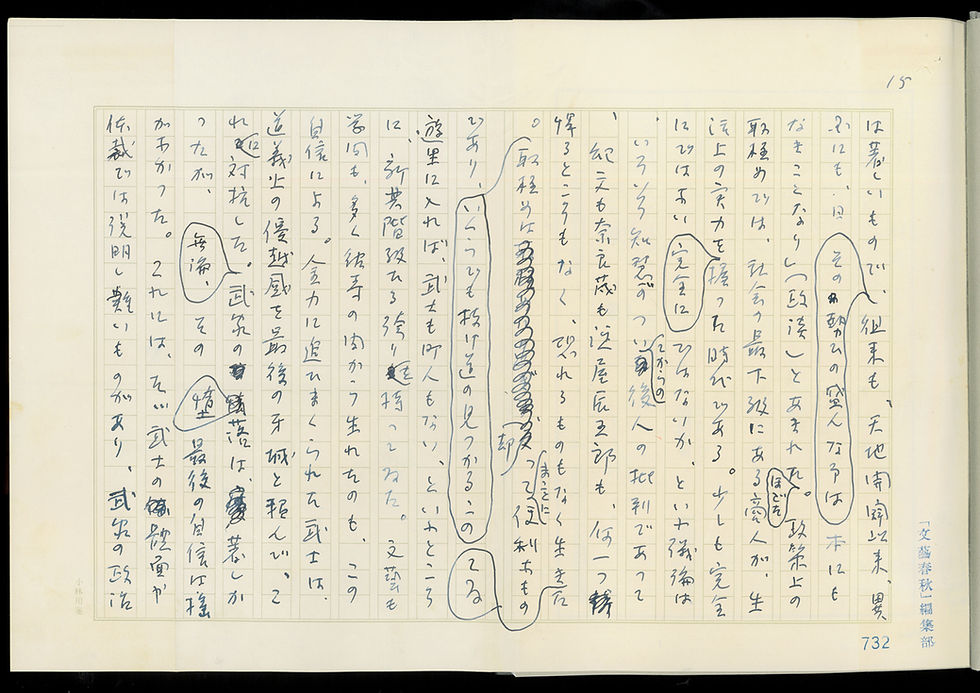 15
は著しいもので、徂来も、「天地開闢以来、異
国にも、日その勢ひの盛んなる事は本にも
なきことなり」(「政談」)とあきれた。政策上の
取極めでは、社会の最下級にあるほどた商人が、生
活上の実力を振った時代である。少しも完全
にではない完全にではないか、といふ議論は
、いろいろ知慧のついたからの後人の批判であって
、紀文も奈良茂も淀屋辰五郎も、何一つ
憚るところもなく、恐れるものもなく生きた
。取極めは却ってまことに便利なもの
であり、いくらでも抜け道の見つかるこの
てゐる
遊里に入れば、武士も町人もない、といふところ
に、新興階級たる強りを持ってゐた。文藝も
学問も、多く彼等の肉から生れたのも、この
自信による。金力に追ひまくられた武士は、
道義上の優越感を最後の牙城と頼んで、こ
れに対抗した。武家の堕落は、著しか
ったが、無論、その最後の自信は揺
がなかった。これには、たゞ武士の体面や
体裁では説明し難いものがあり、武家の政治
「文藝春秋」編集部
732
小林用箋